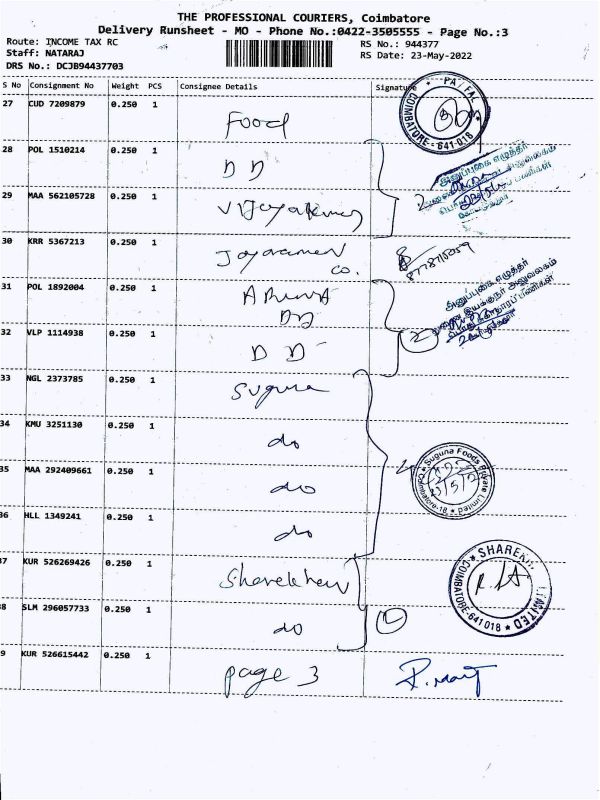 THE PROFESSIONAL COURIERS, Coimbatore
Delivery Runsheet - MO - Phone No.:0422-3505555 - Page No.:3
Route: INCOME TAX RC
RS No.: 944377
Staff: NATARAJ
RS Date: 23-May-2022
DRS No.: DCJB94437703
S No Consignment No Weight PCS Consignee Details Signature
27 CUD 7209879 0.250 1 Food
COIMBATORE - 641-018
28 POL 1510214 0.250 1 D D
அனுப்புகை எழுத்தர்
29 MAA 562105728 0.250 1
30 KRR 5367213 0.250 1 Jayaraman co.
31 POL 1892004 0.250 1 Aruna DD
அனுப்புகை எழுத்தர்
32 VLP 1114938 0.250 1 D D
2
33 NGL 2373785 0.250 1 Suguna
34 KMU 3251130 0.250 1 do
35 MAA 292409661 0.250 1 do
Suguna Foods Private Limited
Coimbatore-18
36 HLL 1349241 0.250 1 do
37 KUR 526269426 0.250 1 Sharekhan
38 SLM 296057733 0.250 1 do
COIMBATORE-641018
LIMITED
39 KUR 526615442 0.250 1 page 3